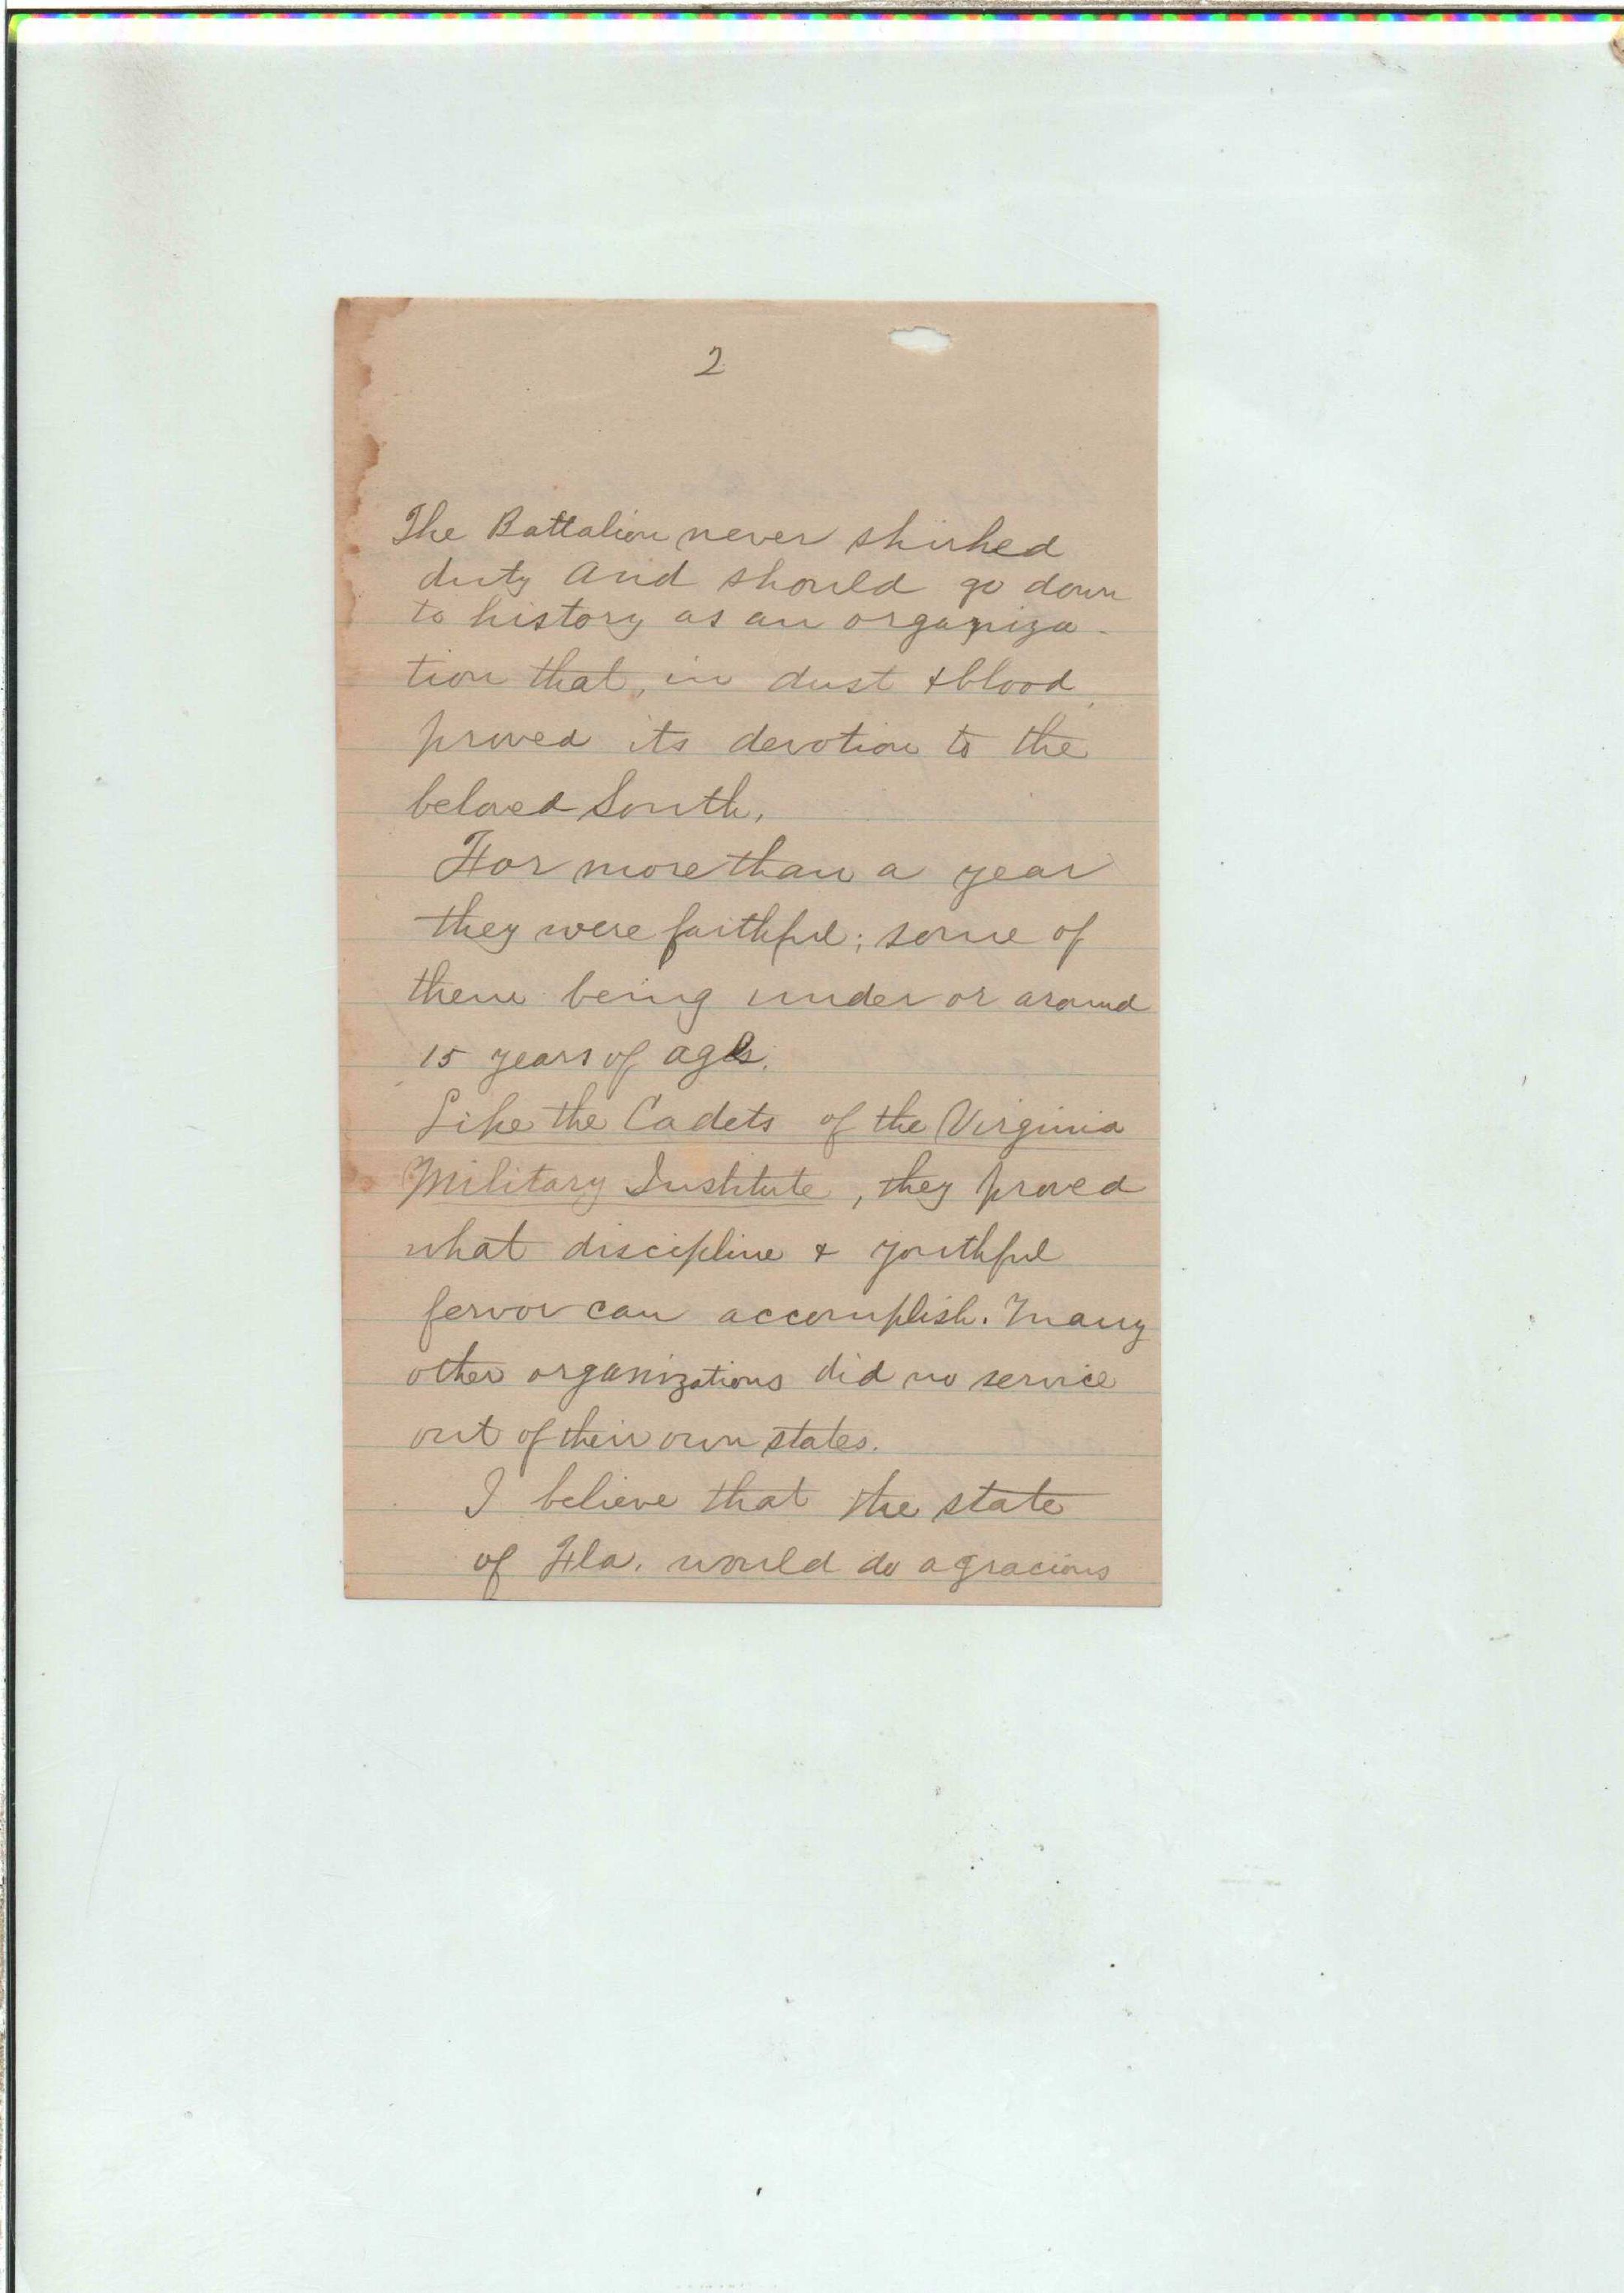 2
The Battalion never shirked
duty and should go down
to history as an organiza-
tion that, in dust & blood,
proved its devotion to the
beloved South.
For more than a year
they were faithful; some of
them being under or around
15 years of age.
Like the Cadets of the Virginia
Military Institute, they proved
what discipline & youthful
fervor can accomplish. Many
other organizations did no service
out of their own states.
I believe that the state
of Fla. would do a gracious